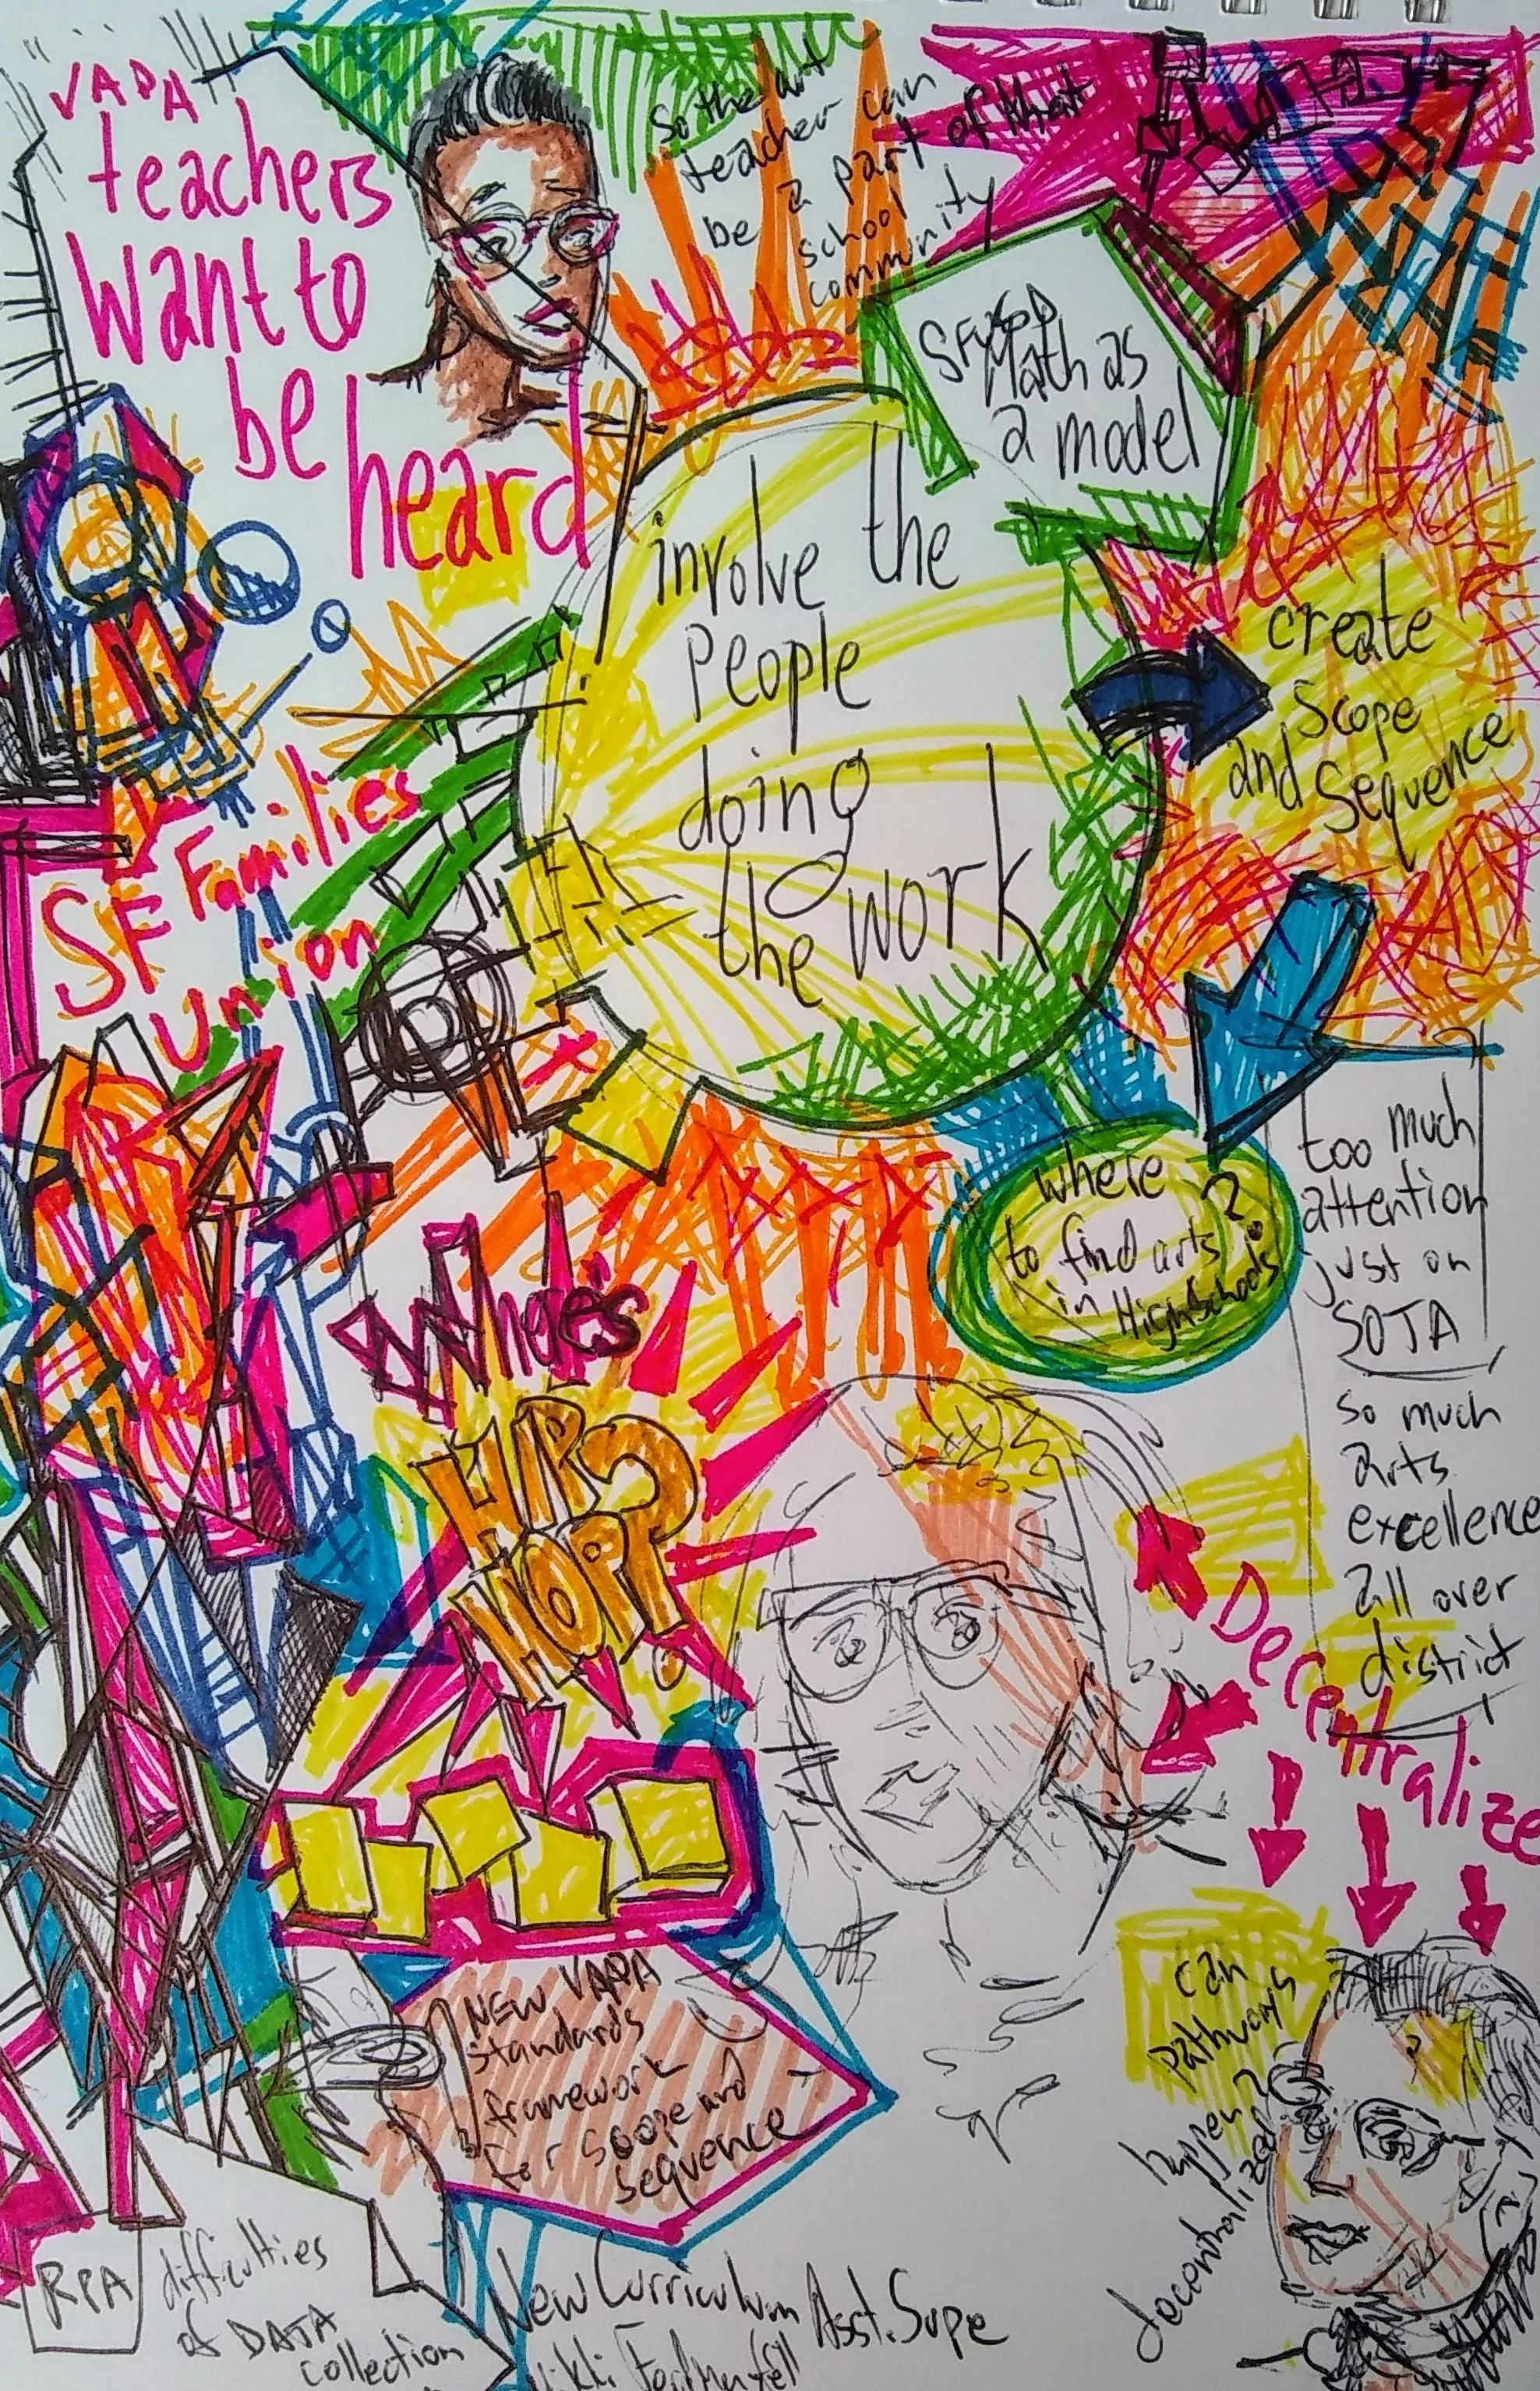 VAPA
teachers
want to
be
heard
So the art
teacher can
be a part of that
school
community
SFUSD
Math as
a model
involve the
People
doing
the work
create
Scope
and Sequence
SF Families
Union
where
to find arts?
in High Schools
too much
attention
just on
SOTA
so much
arts
excellence
all over
district
Where's
HIP
HOP?
Decentralize
can
pathways
happen?
decentralized
NEW VAPA
standards
framework
for scope and
sequence
RPA
difficulties
of DATA
collection
New Curriculum Asst. Supe